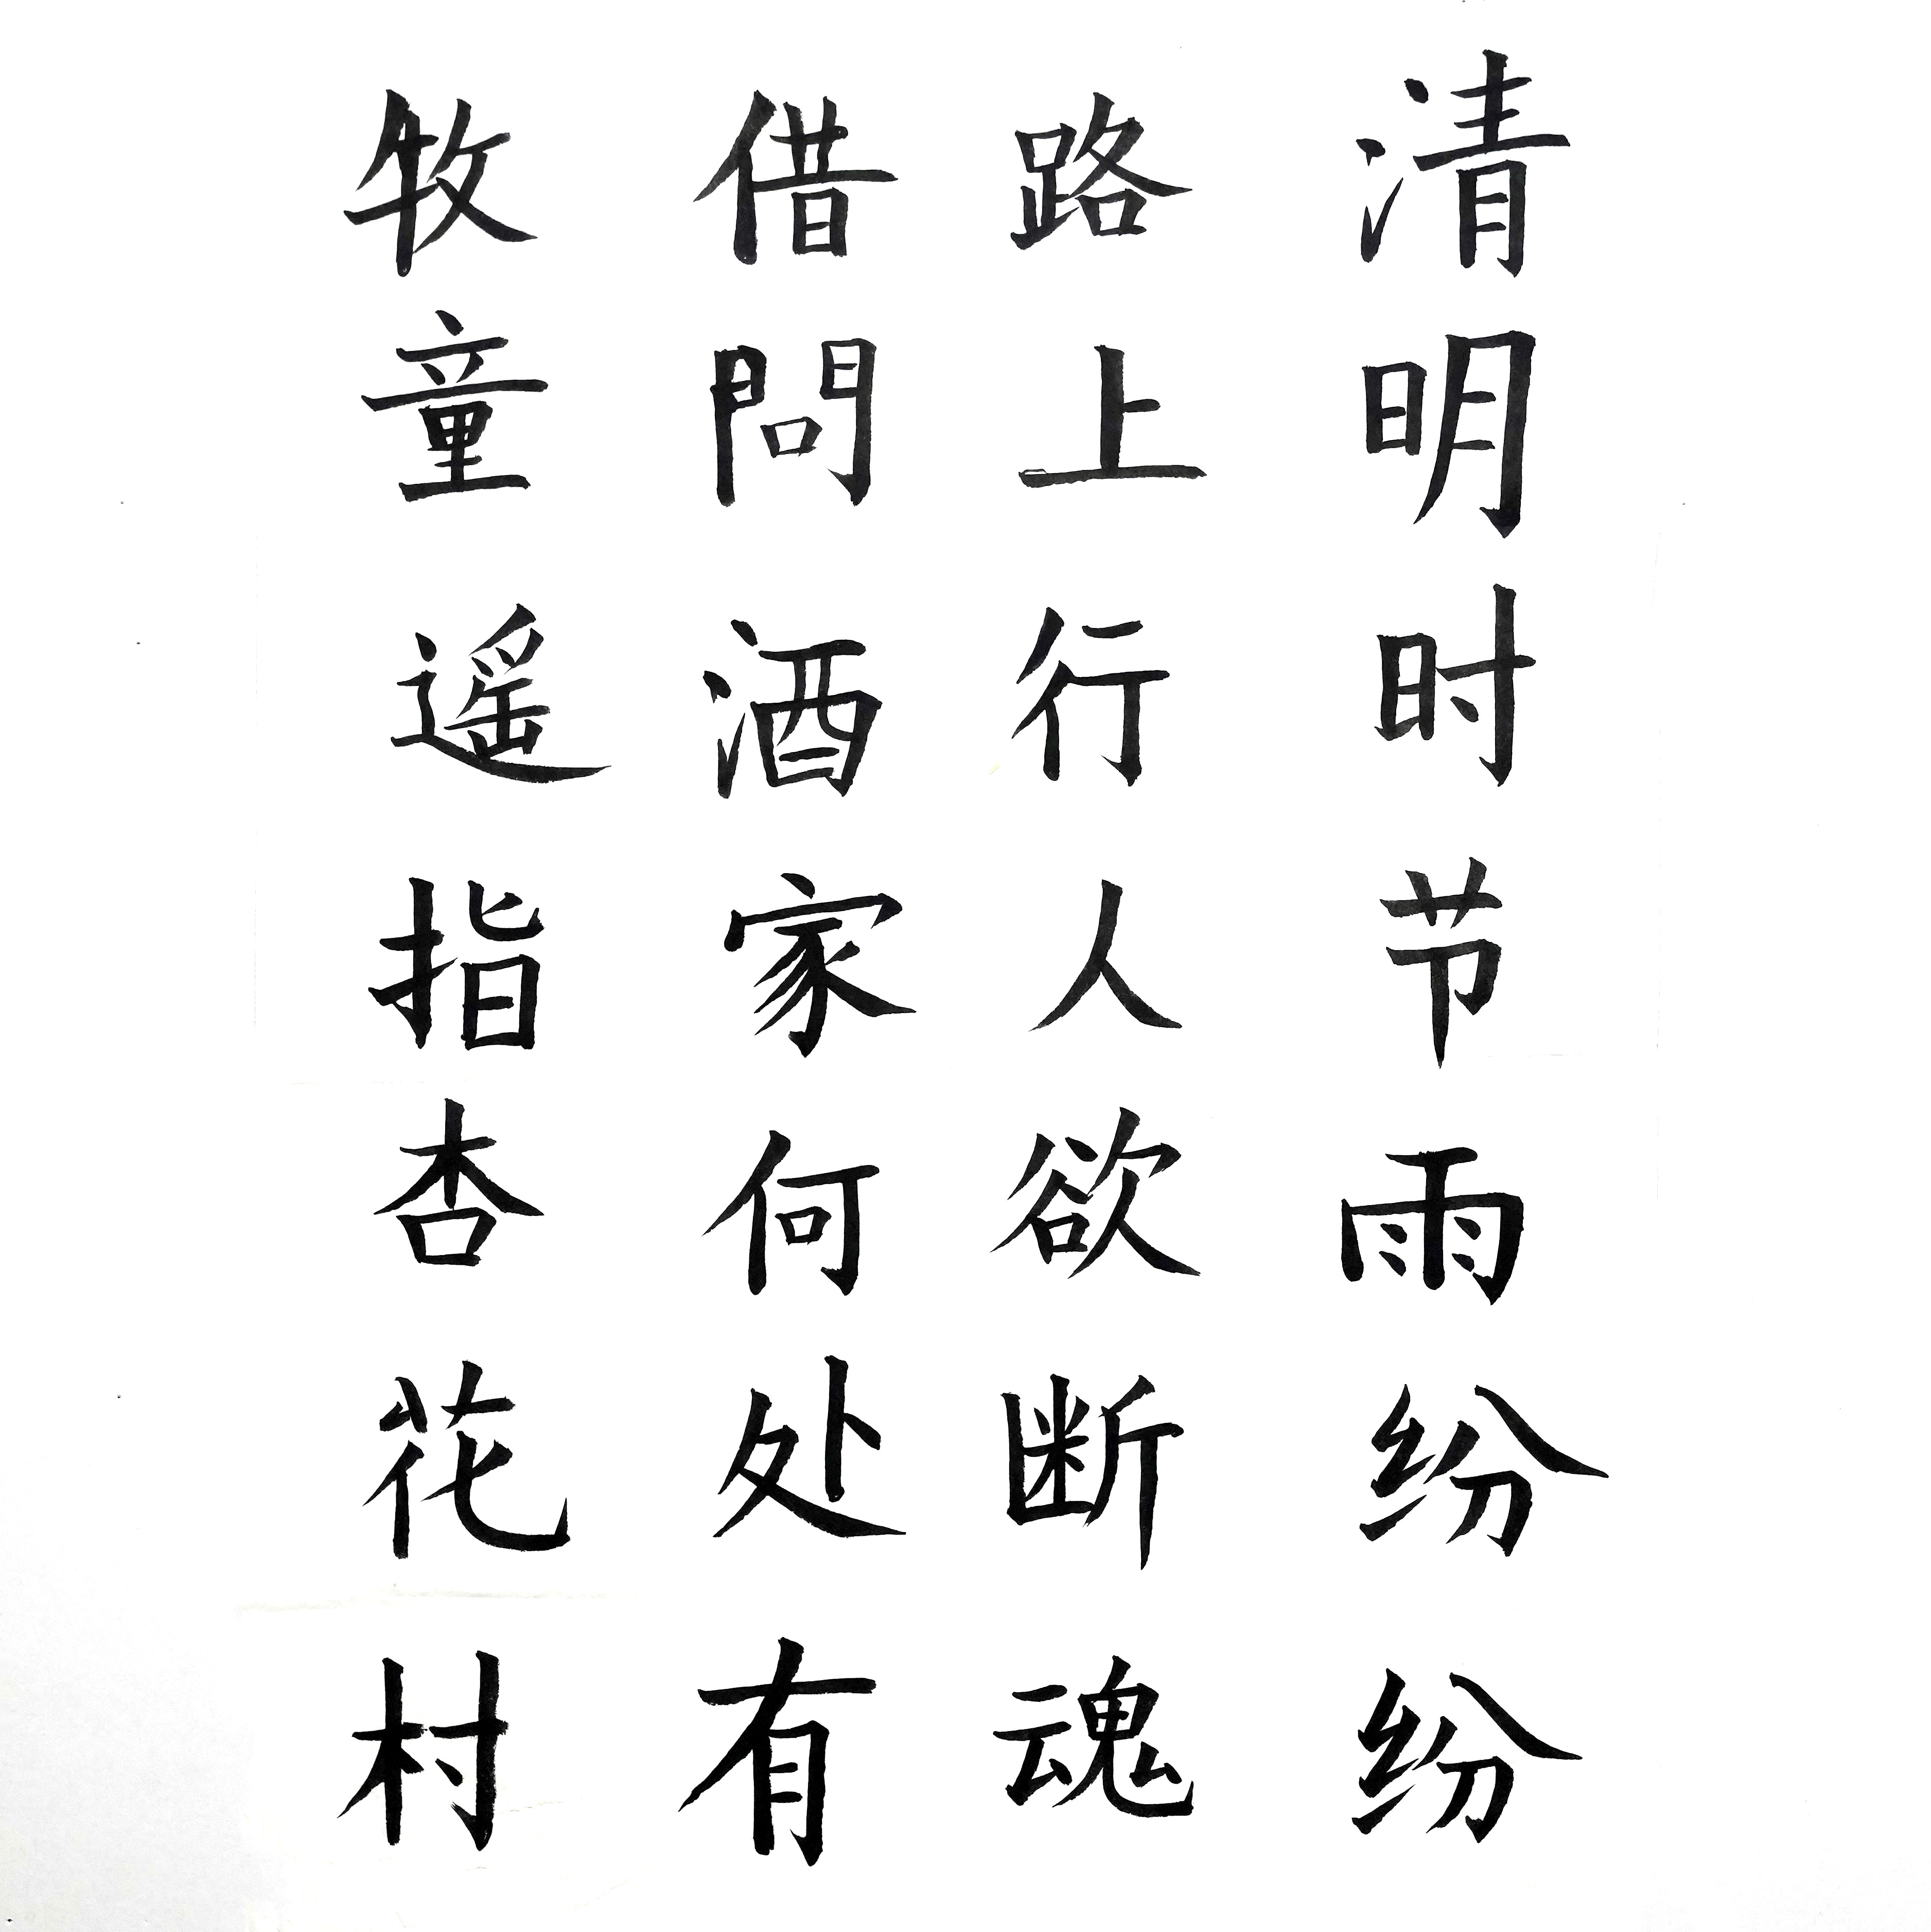 清明时节雨纷纷
路上行人欲断魂
借問酒家何处有
牧童遥指杏花村